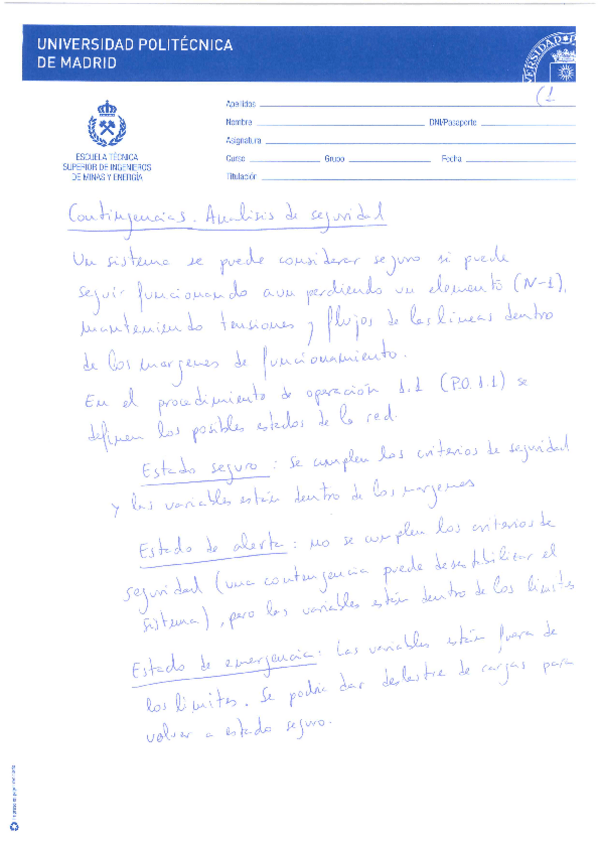 UNIVERSIDAD POLITÉCNICA
DE MADRID
(1
Apellidos
Nombre DNI/Pasaporte
Asignatura
Curso Grupo Fecha
Titulación
ESCUELA TÉCNICA
SUPERIOR DE INGENIEROS
DE MINAS Y ENERGÍA
Contingencias. Analisis de seguridad
Un sistema se puede considerar seguro si puede
seguir funcionando aun perdiendo un elemento (N-1),
manteniendo tensiones y flujos de las lineas dentro
de los margenes de funcionamiento.
En el procedimiento de operación 1.1 (P.O.1.1) se
definen los posibles estados de la red.
Estado seguro : Se cumplen los criterios de seguridad
y las variables están dentro de los margenes
Estado de alerta : no se cumplen los criterios de
seguridad (una contingencia puede desestabilizar el
sistema), pero las variables están dentro de los limites
Estado de emergencia : Las variables están fuera de
los limites. Se podría dar deslastre de cargas para
volver a estado seguro.